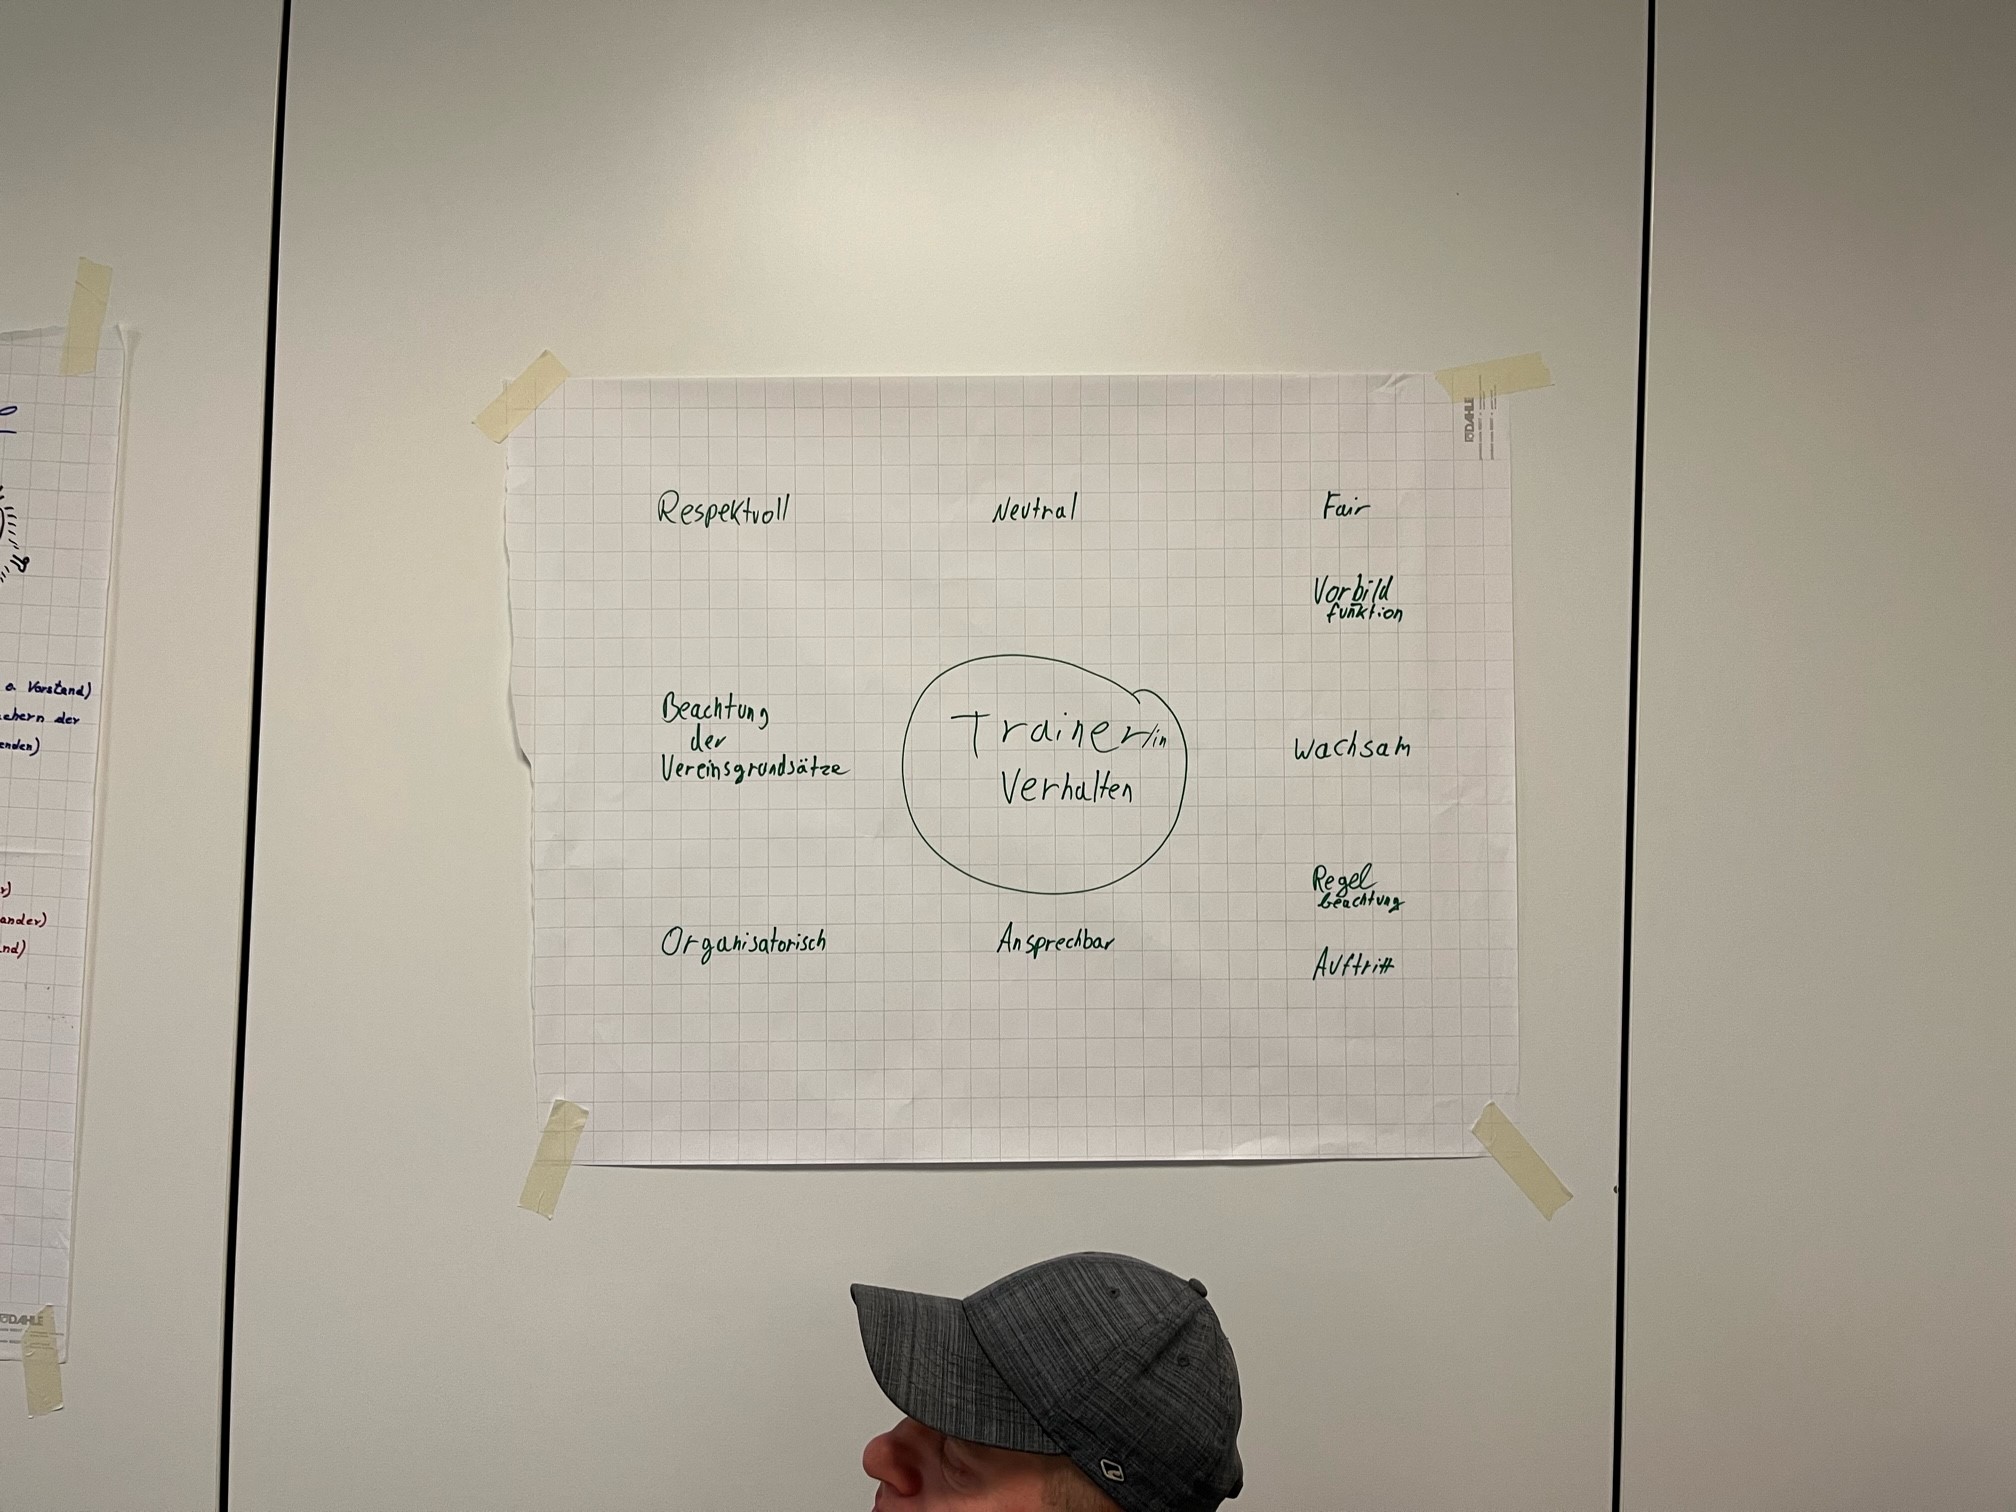 a. Vorstand)
der
ander)
DAHLE
DAHLE
Respektvoll
Neutral
Fair
Vorbild
funktion
Beachtung
der
Vereinsgrundsätze
Trainer/in
Verhalten
Wachsam
Regel
beachtung
Organisatorisch
Ansprechbar
Auftritt